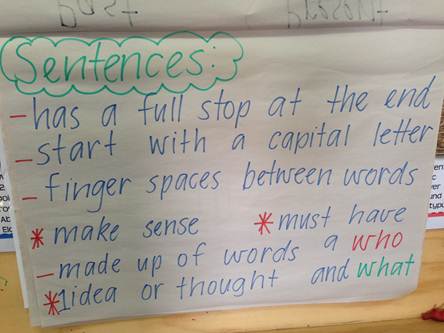 Sentences:
- has a full stop at the end
- start with a capital letter
- finger spaces between words
* make sense
* must have
a who
and what
- made up of words
* 1 idea or thought